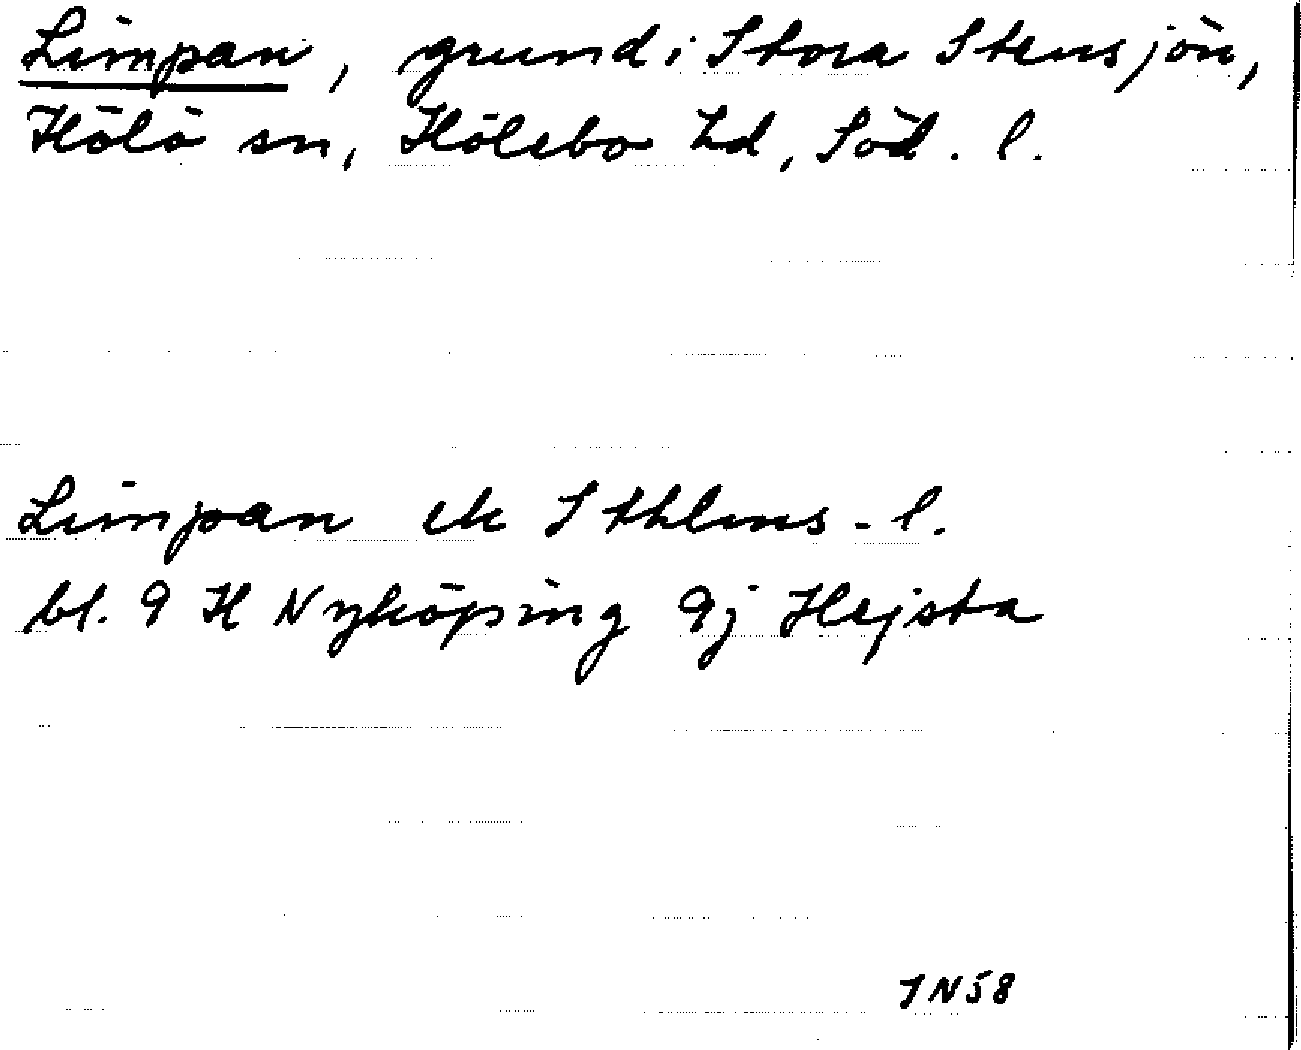 Limpan, grund i Stora Stensjön,
Hölö sn, Hölebo hd, Söd. l.
Limpan ek Sthlms-l.
bl. 9 H Nyköping 9j Hejsta
JN58